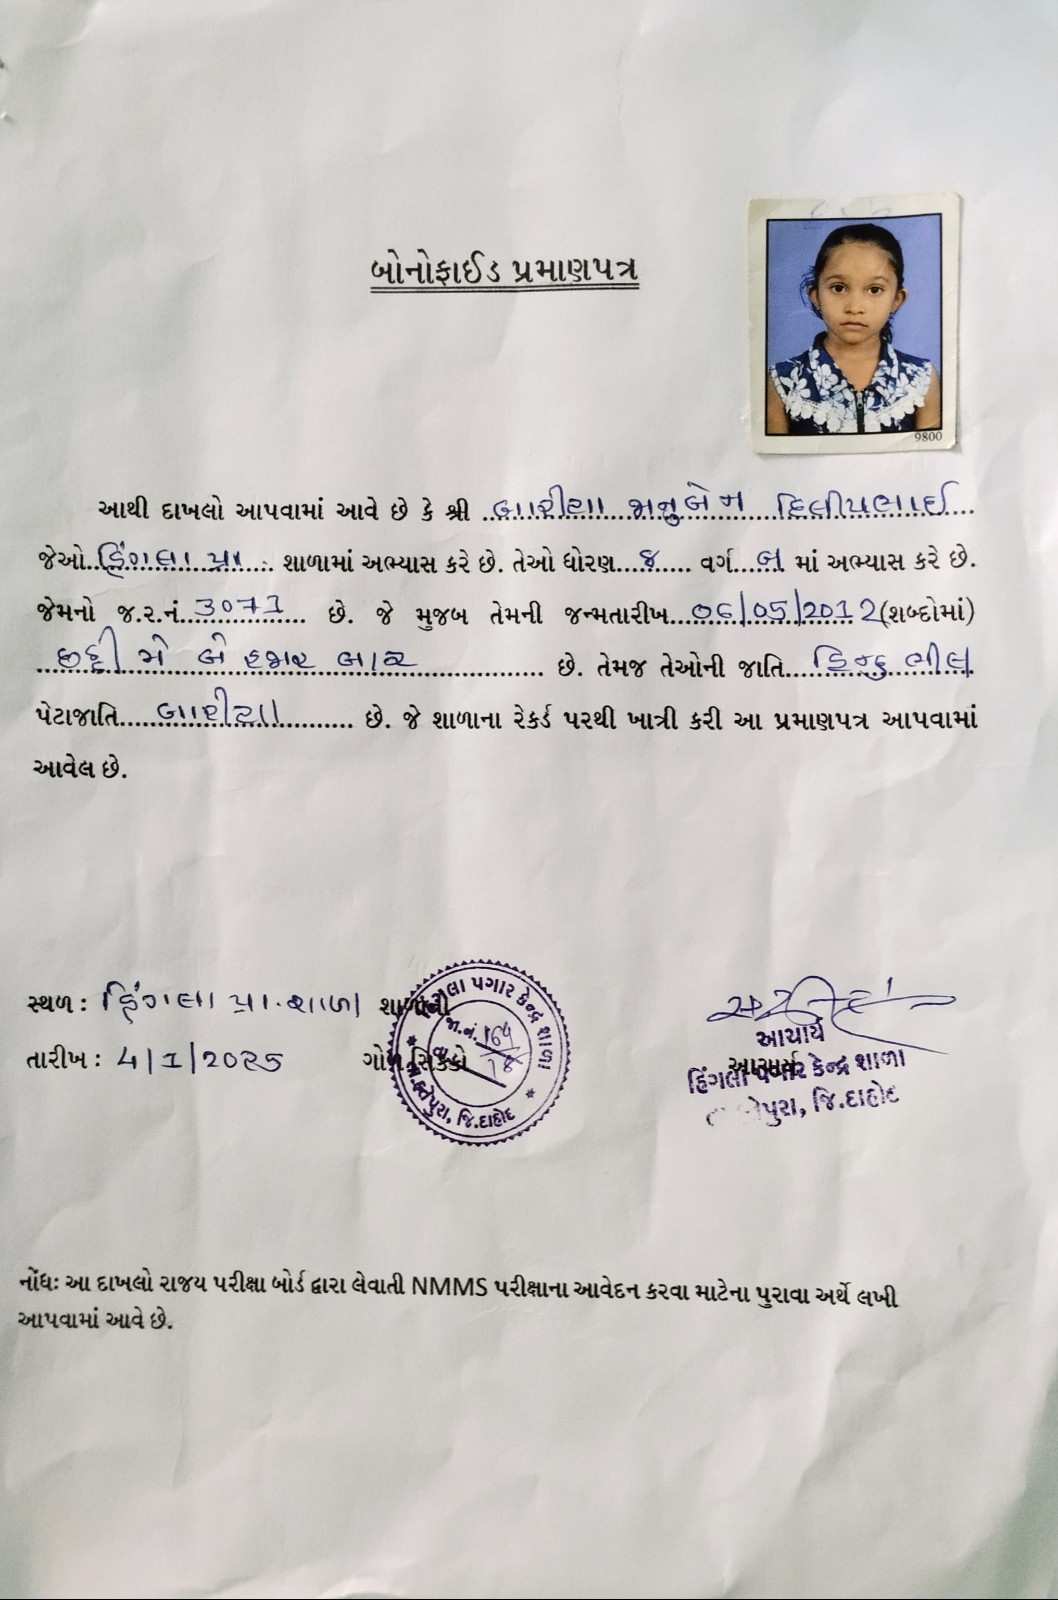 બોનોફાઈડ પ્રમાણપત્ર
9800
આથી દાખલો આપવામાં આવે છે કે શ્રી ..બારીયા મનુબેન દિલીપભાઈ....
જેઓ..હિંગલા પ્રા.. શાળામાં અભ્યાસ કરે છે. તેઓ ધોરણ....૪..... વર્ગ....બ માં અભ્યાસ કરે છે.
જેમનો જ.ર.નં.3071 છે. જે મુજબ તેમની જન્મતારીખ...06/05/2012(શબ્દોમાં)
છઠ્ઠી મે બે હજાર બાર છે. તેમજ તેઓની જાતિ....હિન્દુ ભીલ
પેટાજાતિ.....બારીયા.......... છે. જે શાળાના રેકર્ડ પરથી ખાત્રી કરી આ પ્રમાણપત્ર આપવામાં
આવેલ છે.
સ્થળ : હિંગલા પ્રા.શાળા શાળાની
તારીખ : 4/1/2025 ગોળ સિક્કો
પગાર કેન્દ્ર શાળા
જા.નં. 164/18
જિ.દાહોદ
આચાર્ય
આચાર્ય
હિંગલા પગાર કેન્દ્ર શાળા
જિ.દાહોદ
નોંધઃ આ દાખલો રાજય પરીક્ષા બોર્ડ દ્વારા લેવાતી NMMS પરીક્ષાના આવેદન કરવા માટેના પુરાવા અર્થે લખી
આપવામાં આવે છે.